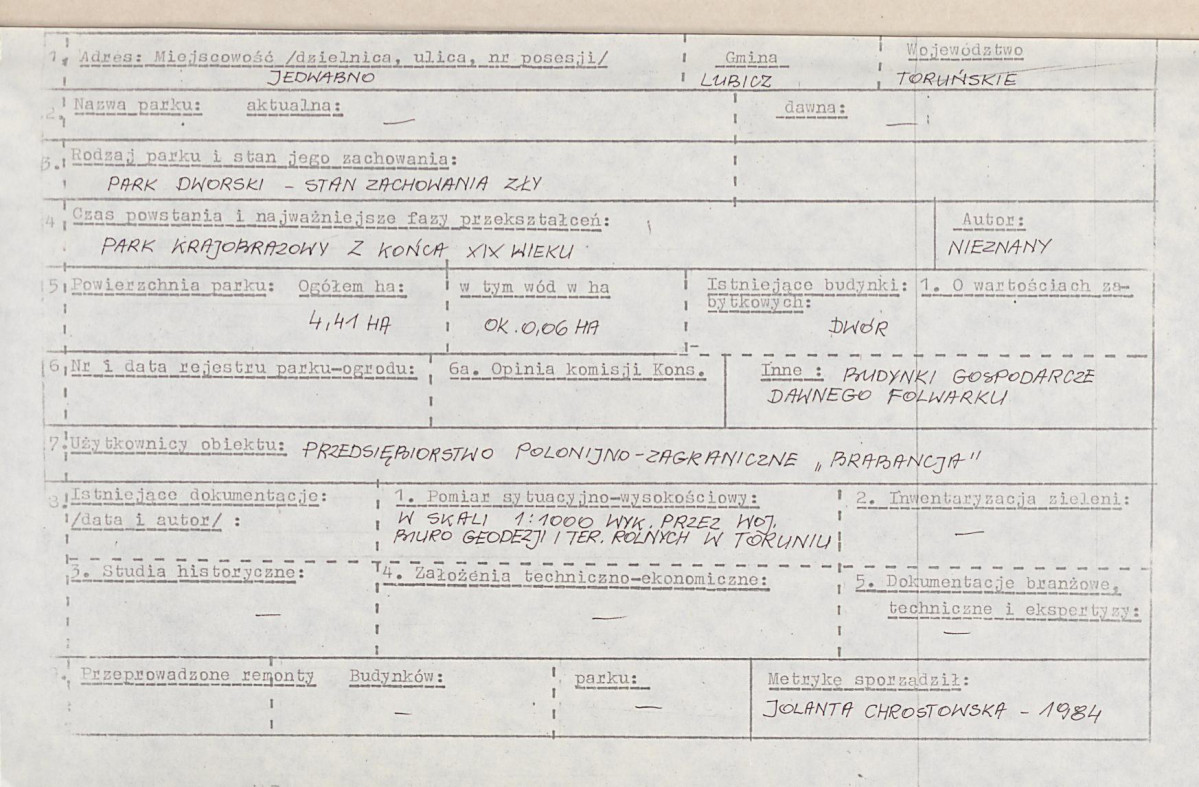 1. Adres: Miejscowość /dzielnica, ulica, nr posesji/
JEDWABNO
Gmina
LUBICZ
Województwo
TORUŃSKIE
2. Nazwa parku: aktualna: —
dawna: —
3. Rodzaj parku i stan jego zachowania:
PARK DWORSKI - STAN ZACHOWANIA ZŁY
4. Czas powstania i najważniejsze fazy przekształceń:
PARK KRAJOBRAZOWY Z KOŃCA XIX WIEKU
Autor:
NIEZNANY
5. Powierzchnia parku: Ogółem ha:
4,41 HA
w tym wód w ha
OK. 0,06 HA
Istniejące budynki: 1. O wartościach za-
bytkowych:
DWÓR
6. Nr i data rejestru parku-ogrodu:
6a. Opinia komisji Kons.
Inne : BUDYNKI GOSPODARCZE
DAWNEGO FOLWARKU
7. Użytkownicy obiektu: PRZEDSIĘBIORSTWO POLONIJNO-ZAGRANICZNE „BRABANCJA"
8. Istniejące dokumentacje:
/data i autor/ :
1. Pomiar sytuacyjno-wysokościowy:
W SKALI 1:1000 WYK. PRZEZ WOJ.
BIURO GEODEZJI I TER. ROLNYCH W TORUNIU
2. Inwentaryzacja zieleni:
—
3. Studia historyczne:
—
4. Założenia techniczno-ekonomiczne:
—
5. Dokumentacje branżowe,
techniczne i ekspertyzy:
—
9. Przeprowadzone remonty Budynków:
—
parku:
—
Metrykę sporządził:
JOLANTA CHROSTOWSKA - 1984